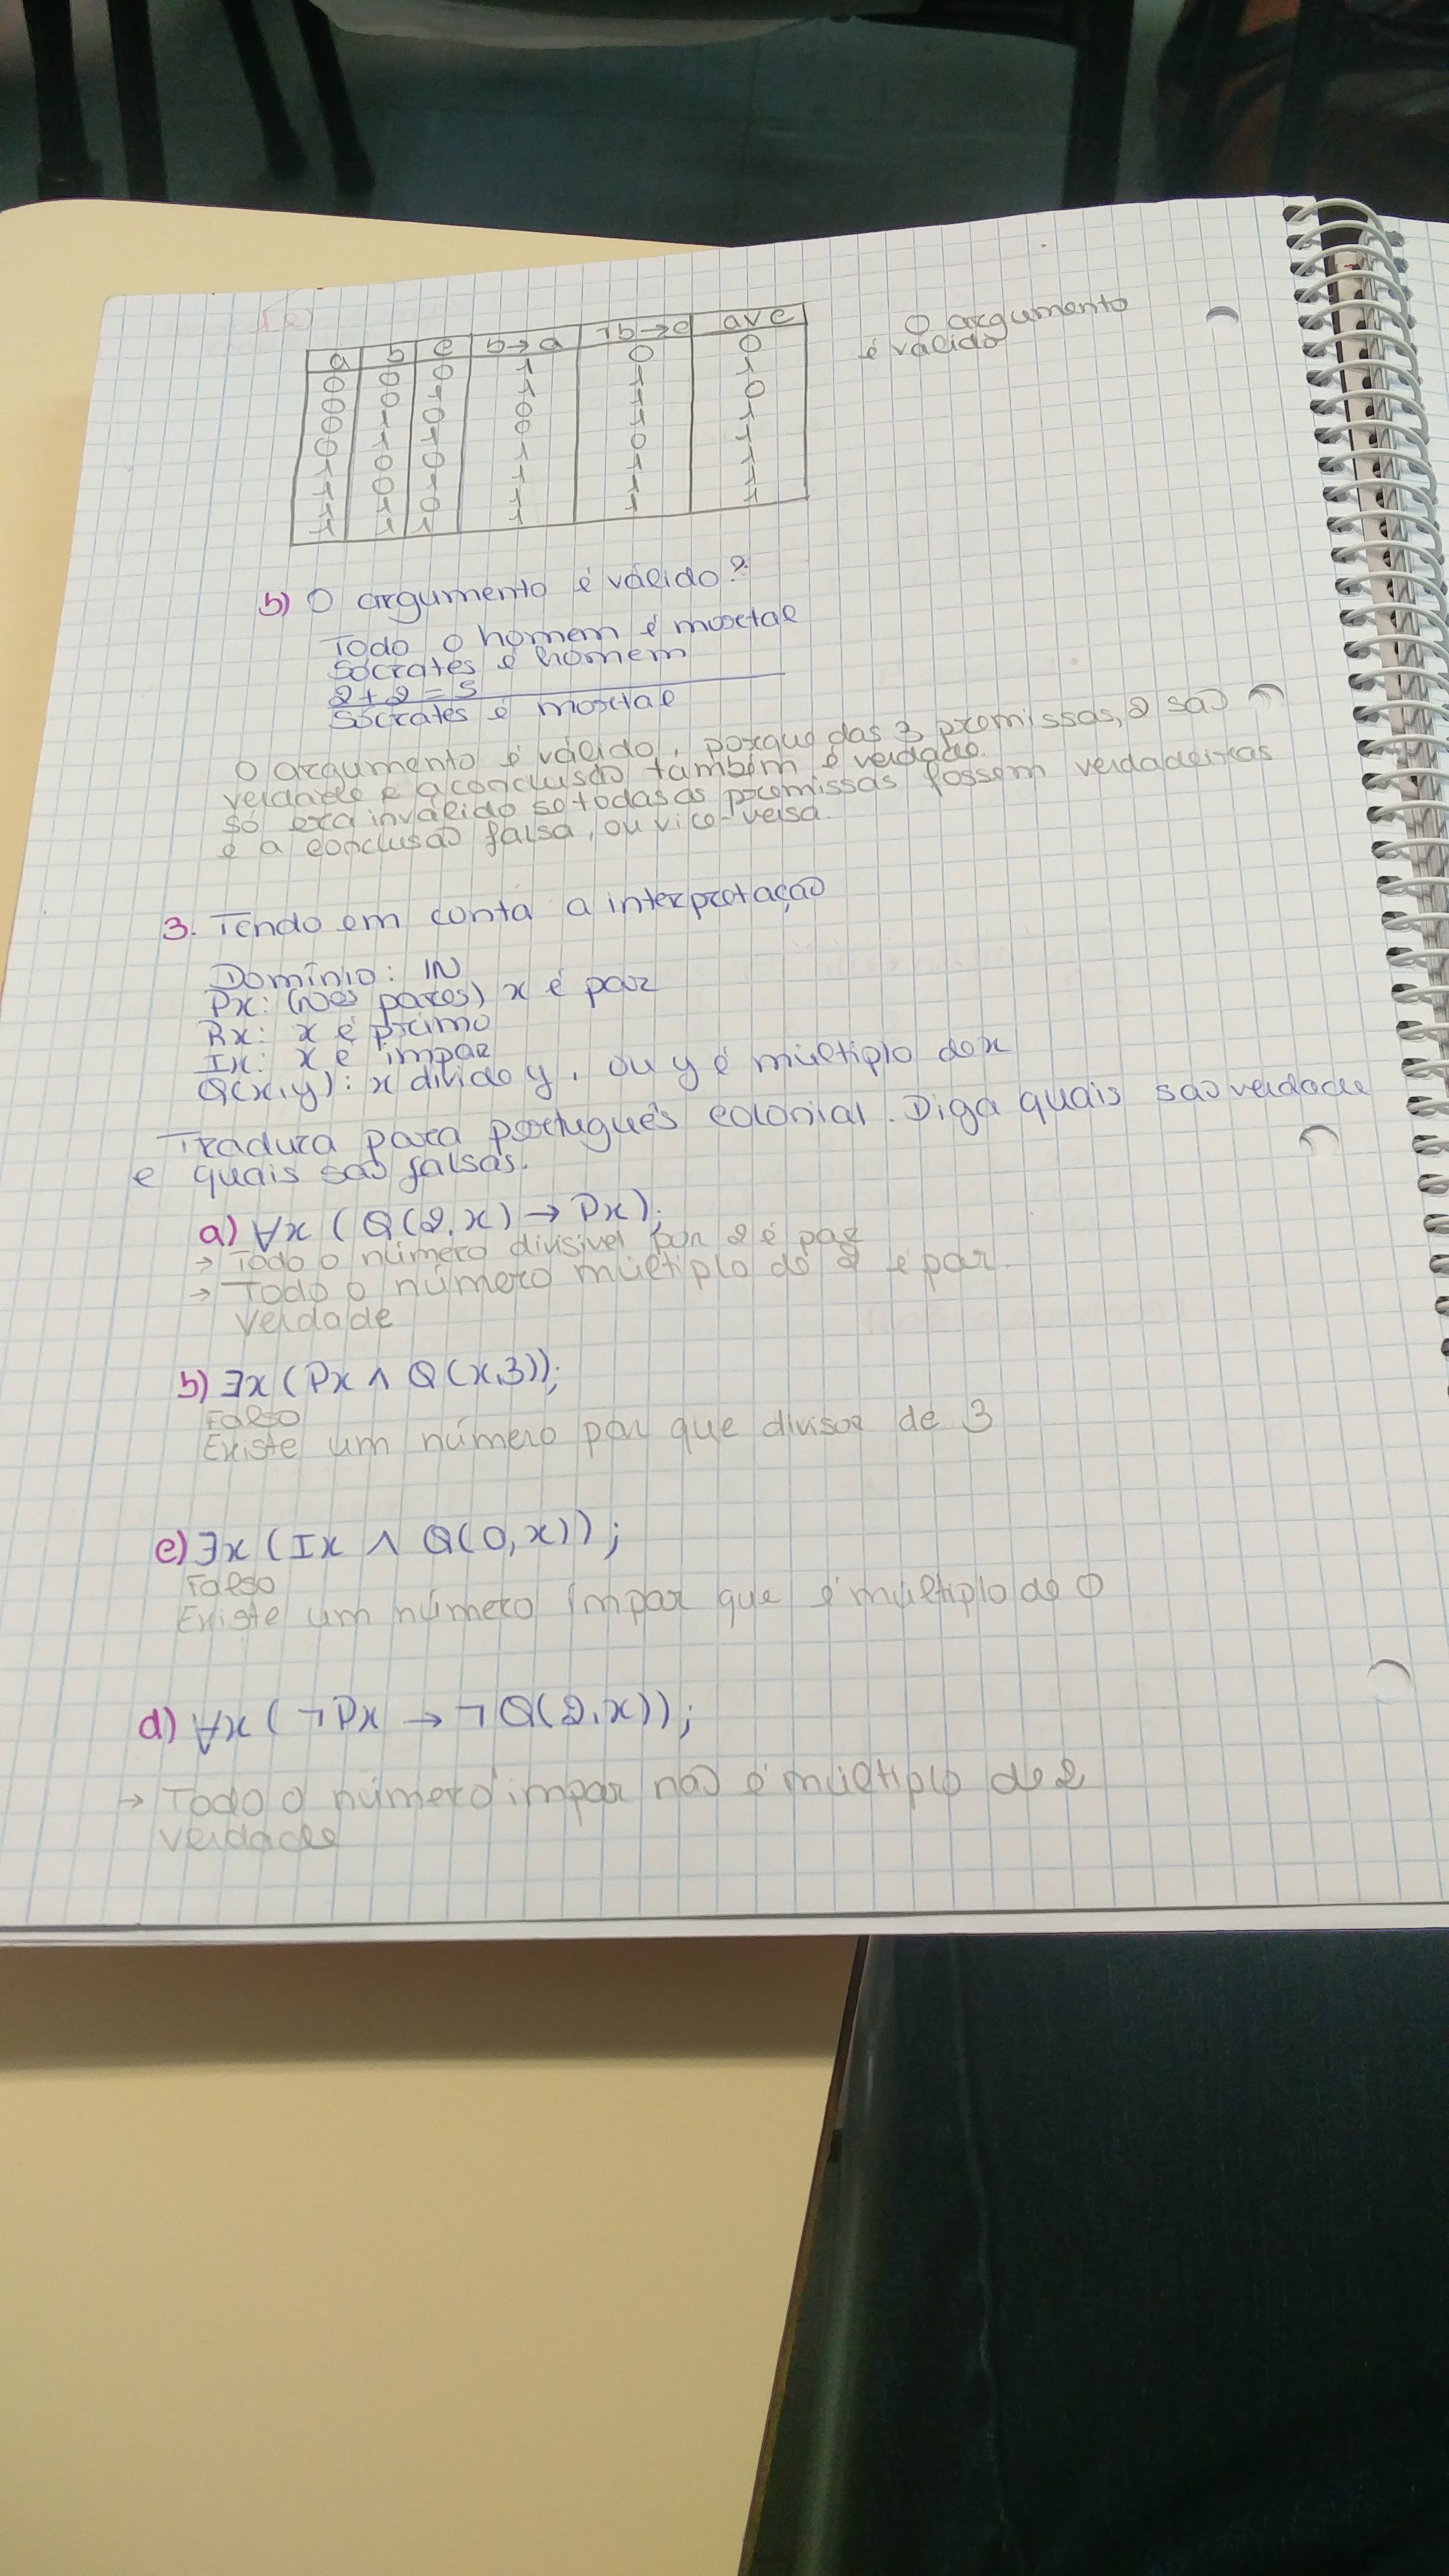 a b c b→a ¬b→c a∨c
0 0 0 1 0 0
0 0 1 1 1 1
0 1 0 0 1 0
0 1 1 0 1 1
1 0 0 1 0 1
1 0 1 1 1 1
1 1 0 1 1 1
1 1 1 1 1 1
O argumento
é válido
b) O argumento é válido?
Todo o homem é mortal
Sócrates é homem
2+2=5
Sócrates é mortal
O argumento é válido, porque das 3 premissas, 2 são
verdade e a conclusão também é verdade.
Só era inválido se todas as premissas fossem verdadeiras
e a conclusão falsa, ou vice-versa.
3. Tendo em conta a interpretação
Domínio: IN
Px: (nos pares) x é par
Rx: x é primo
Ix: x é impar
Q(x,y): x divide y, ou y é múltiplo de x
Tradura para português colonial. Diga quais são verdade
e quais são falsas.
a) ∀x (Q(2,x) → Px);
→ Todo o número divisível por 2 é par
→ Todo o número múltiplo de 2 é par.
Verdade
b) ∃x (Px ∧ Q(x,3));
Falso
Existe um número par que divisor de 3
c) ∃x (Ix ∧ Q(0,x));
Falso
Existe um número impar que é múltiplo de 0
d) ∀x (¬Px → ¬Q(2,x));
→ Todo o número impar não é múltiplo de 2
verdade